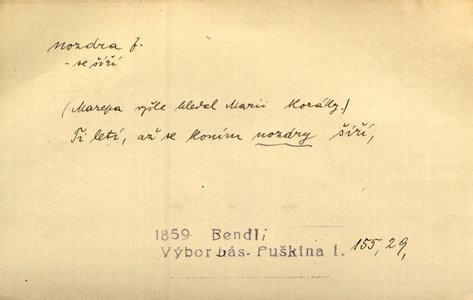 nozdra f.
- se šíří
(Mazepa výše hledal Marii Kozáky.)
Ti letí, až se koním nozdry šíří,
1859 Bendl,
Výbor bás. Puškina 1. 155, 29,